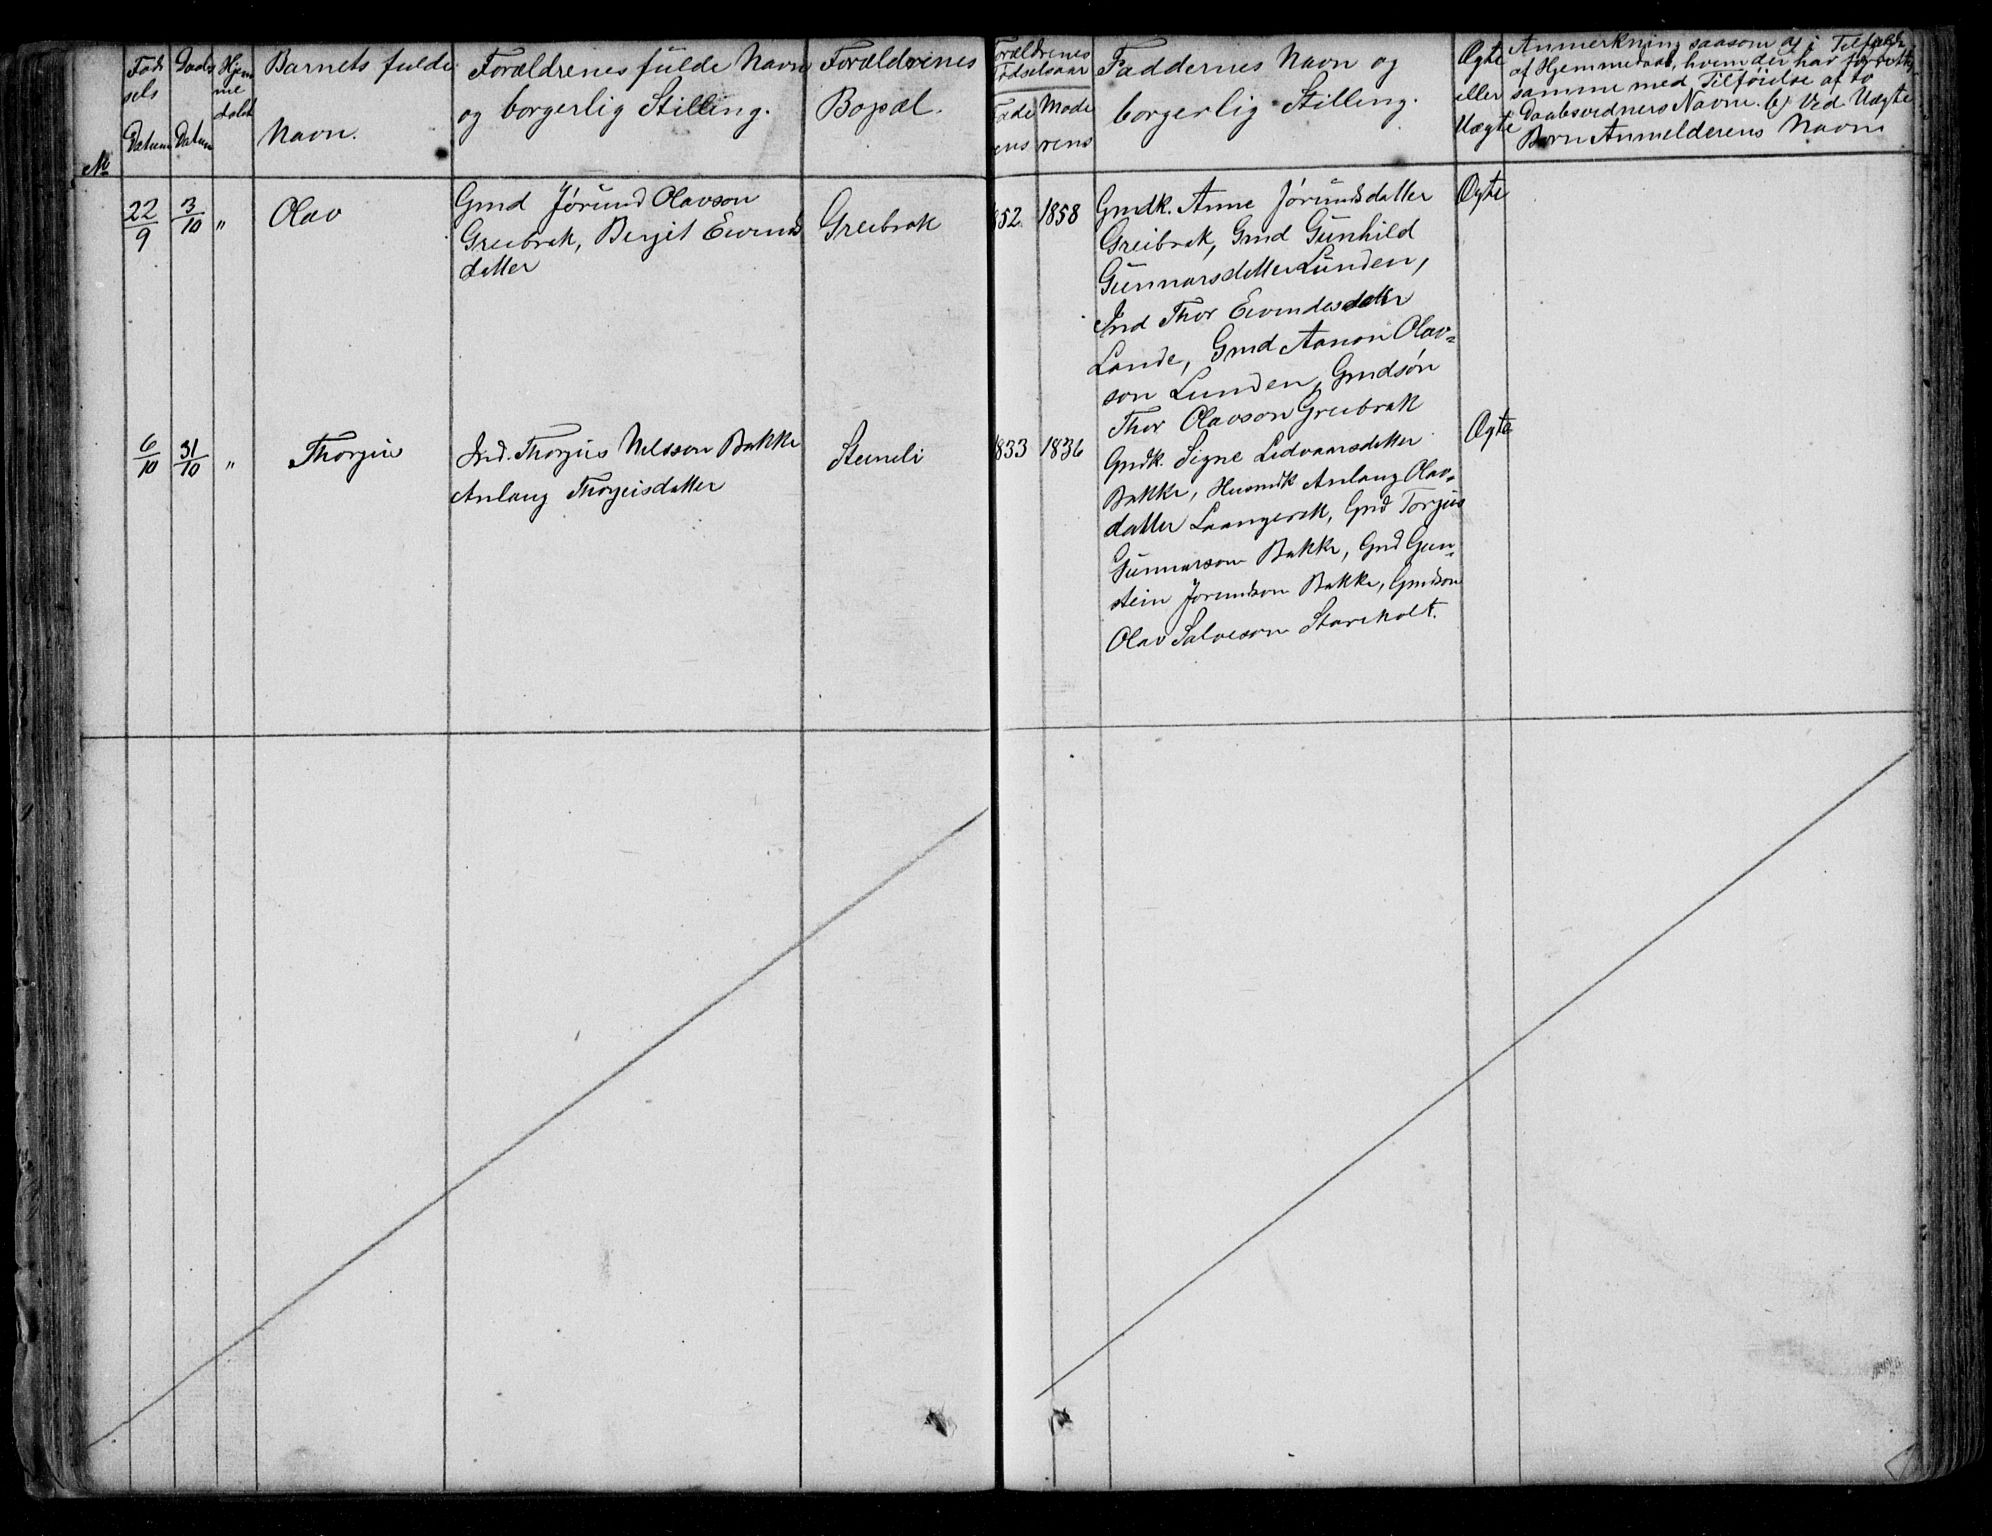 №
Föd
sels
Datum
Daabs
Datum
Hjem
me
døbt
Barnets fulde
Navn.
Forældrenes fulde Navn
og borgerlig Stilling.
Forælderenes
Bopæl.
Forældrenes
Fødselsaar
Fade
rens
Mode
rens
Faddernes Navn og
borgerlig Stilling.
Øgte
eller
Uægte
Anmerkning saasom a, i Tilfælde
af Hjemmedaab, hvem der har forrettet
samme med Tilføielse af to
Daabsvidners Navne. b, Ved Uægte
Børn Anmelderens Navn
22/9
3/10
"
Olav
Gmd Jørund Olavson
Greibrok, Berjit Eivinds
datter
Greibrok
852
1858
Gmdk. Anne Jørundsdatter
Greibrok, Gmd Gunhild
Gunnarsdatter Lunden,
Ind Thor Eivindsdatter
Lande, Gmd Aanon Olav=
son Lunden, Gmdsøn
Thor Olavson Greibrok
Øgte
6/10
31/10
"
Thorgius
Ind. Thorgius Nelsson Bakke
Anlaug Thorgiusdatter
Steineli
833
1836
Gmdk. Signe Lidvaarsdatter
Bakke, Husmdk Anlaug Olav=
datter Laangerak, Gmd Torgius
Gunnarson Bakke, Gmd Gun=
stein Jorundson Bakke, Gmdson
Olav Salveson Stareholt.
Øgte